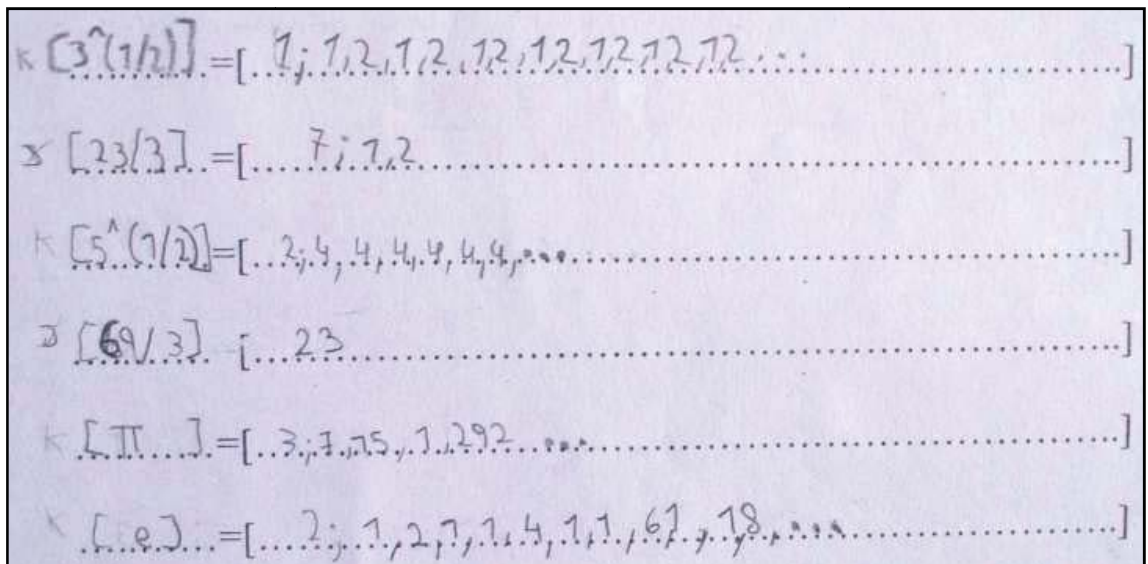 K [3^(1/2)] = [ 1; 1,2,1,2,12,12,12,12,12 ... ]
[23/3] = [ 7; 1,2 ]
K [5^(1/2)] = [ 2; 4, 4, 4, 4, 4, 4, ... ]
[69/3] [ 23 ]
K [ π ] = [ 3; 7, 15, 1, 292 ... ]
K [ e ] = [ 2; 1, 2, 1, 1, 4, 1, 1, 61, 18, ... ]